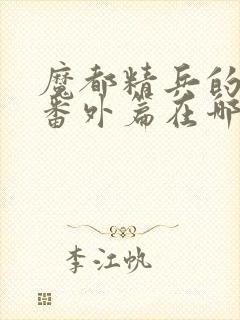 魔都精兵的
番外篇在哪
李江帆